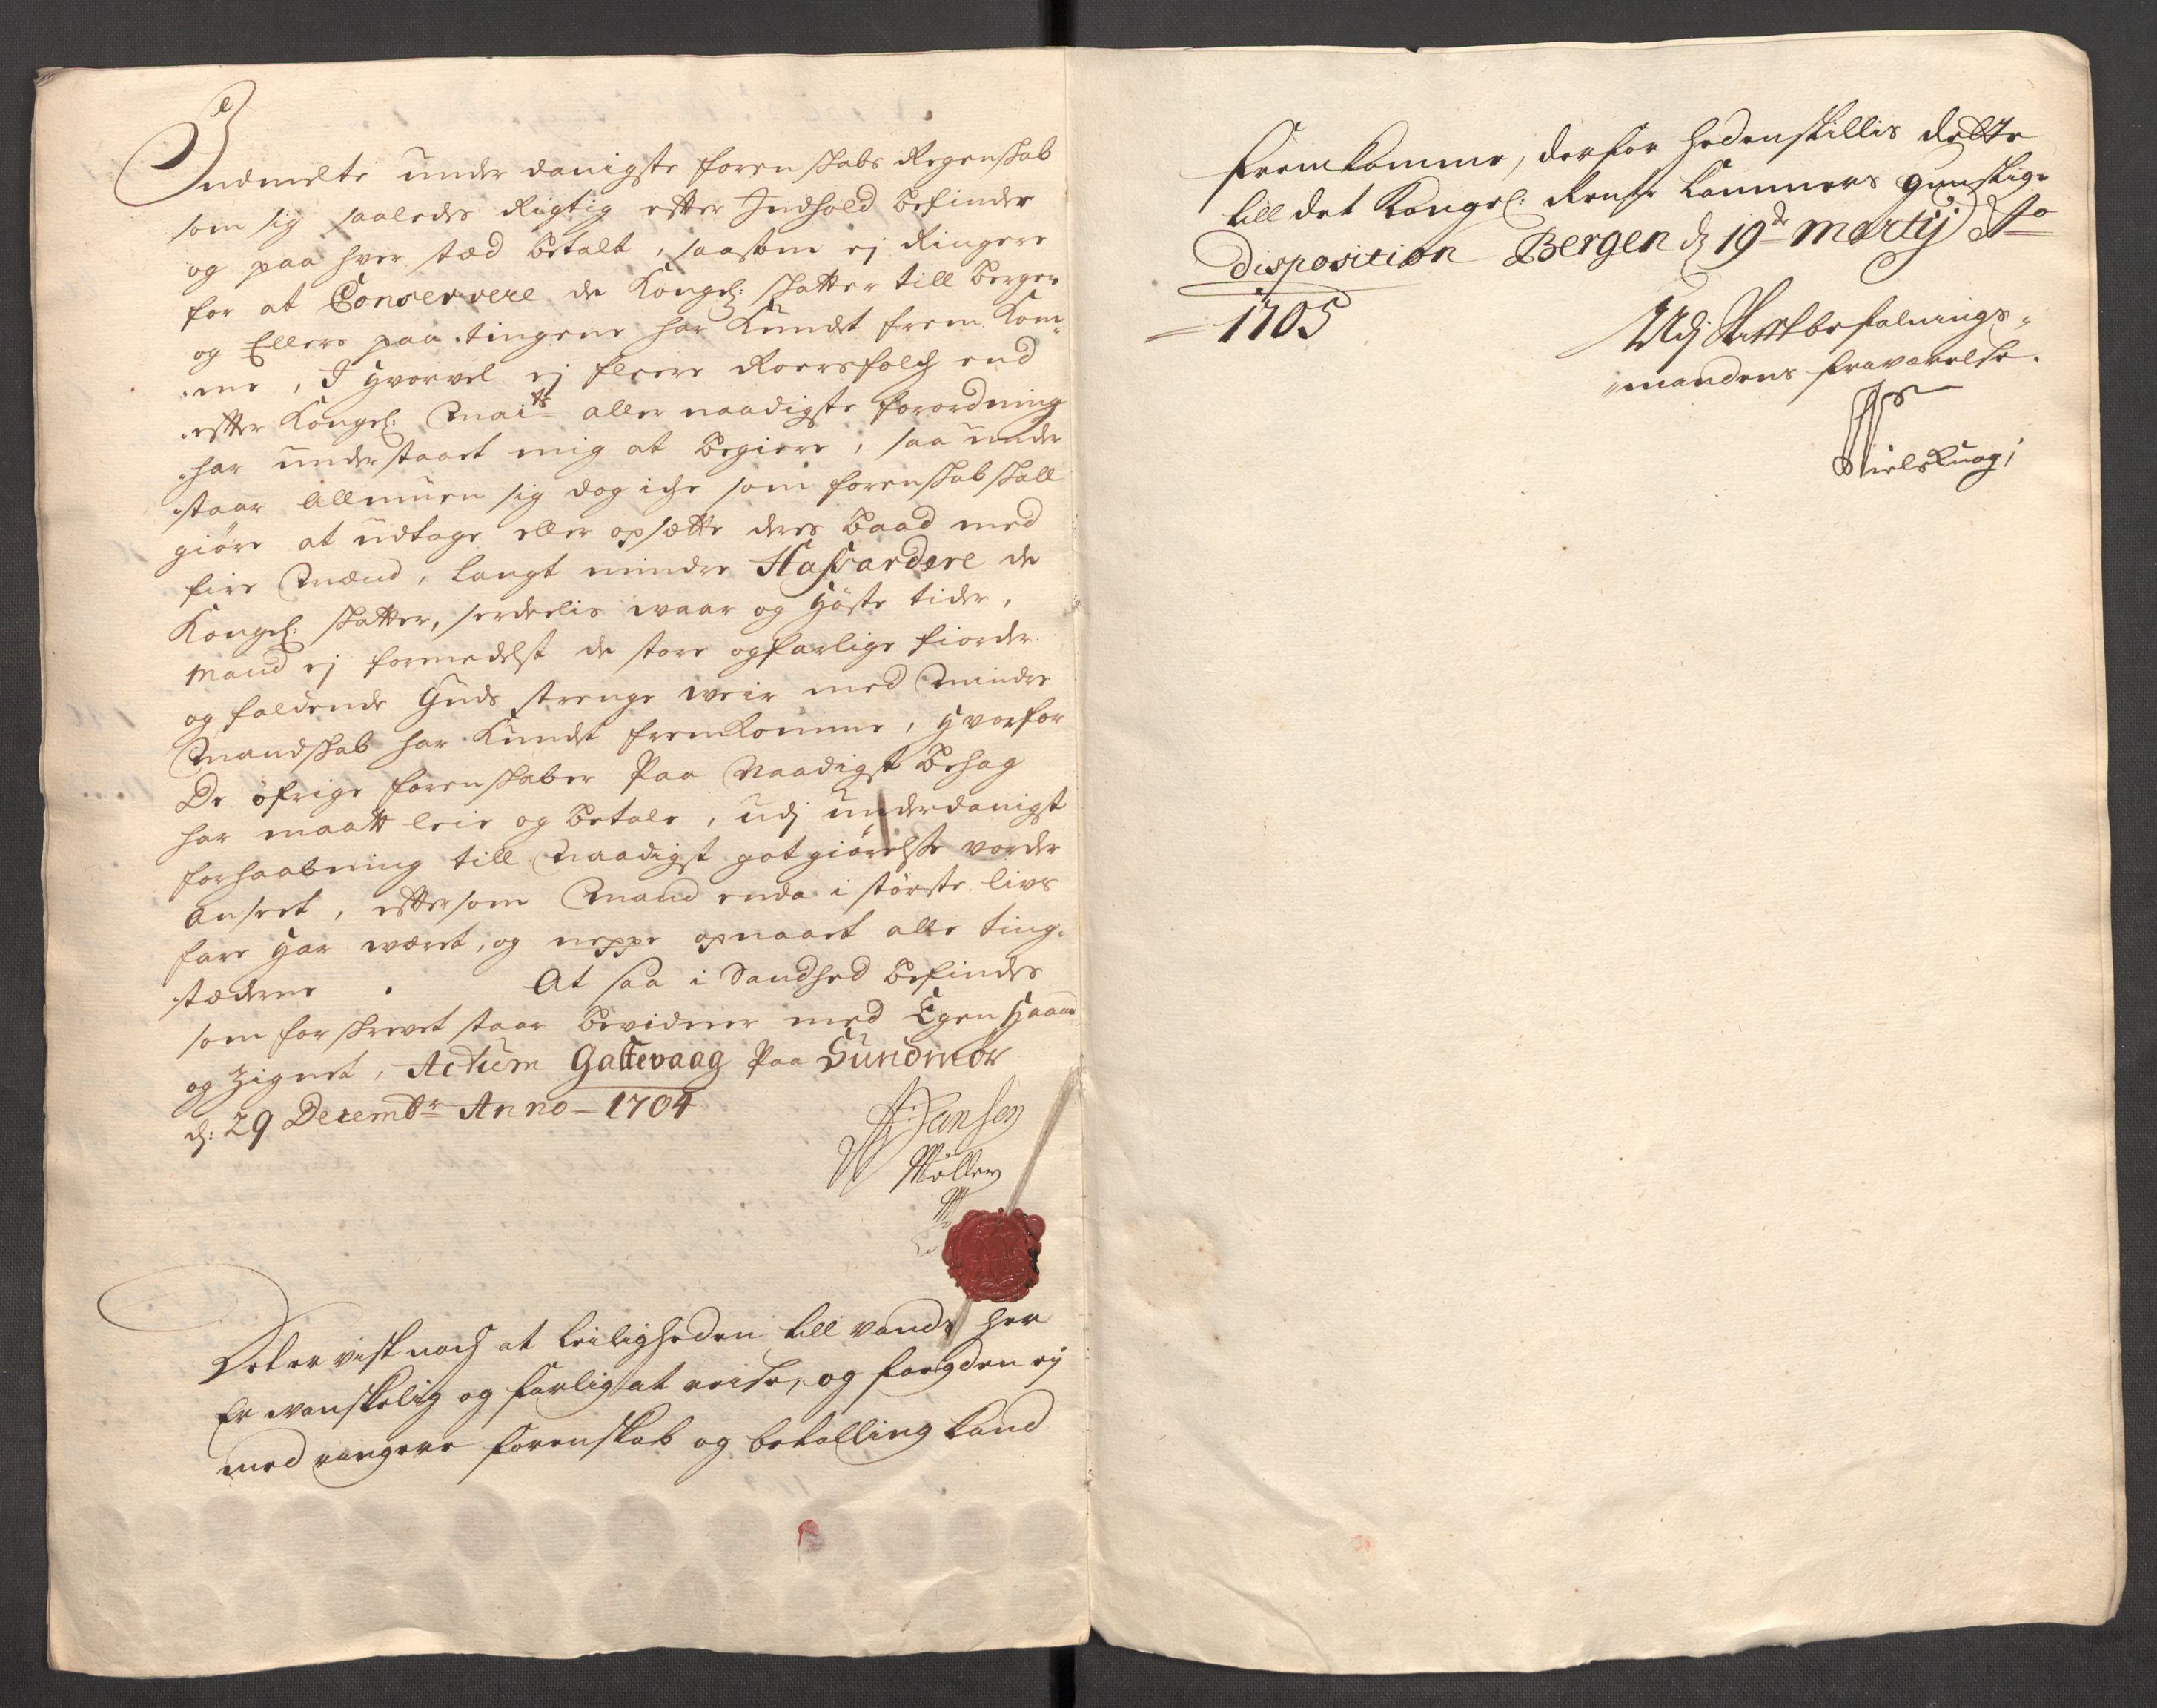 Indmelte under danigste forenskabs Regenskab
som sig saaledes Rigtig efter Indhold befinder
og paa hver stæd betalt, saasom ej Ringere
for at Conservere de Kongel: skatter till bergen
og Ellers paa tingene har kundet frem kom¬
me, I hvorvel ej fleere Roersfolch end
efter Kongel: Mai^ts aller naadigste forordning
har understaaet mig at begiere, saa under
staar Allmuen sig dog iche som forenskab skall
giøre at udtage eller opsætte deres baad med
fire Mænd, langt mindre Hassardere de
Kongel: skatter, serdeelis waar og høste tider,
Mand ej formedelst de store og farlige fiorder
og faldende Guds strenge weir med Mindre
Mandskab har kundet fremkomme, hvorfor
De øfrige forenskaber Paa Naadigst behag
har maatt leie og betale, udj underdanigst
forhaabning till Naadigst got giørelse vorder
Anseet, eftersom Mand enda i største livs
fare har wæret, og neppe opnaaet alle ting¬
stæderne. At saa i Sandhed befindes
som forskrevet staar bevidner med Egen Haand
og Zignet, Actum Gattevaag Paa Sundmør
d: 29 Decemb^r Anno 1704
Hansen
Møller
Det er vist noch at leiligheden till vands her
Er wanskelig og farlig at reise, og foegden ej
med ringere forenskab og betalling kand
fremkomme, derfor hedenstillis dette
till det Kongel: Rente Cammers gunstige
disposition Bergen d 19^de Martij A^o
1705
Udj Stiftbefalnings¬
mandens fraværelse.
Niels Knag